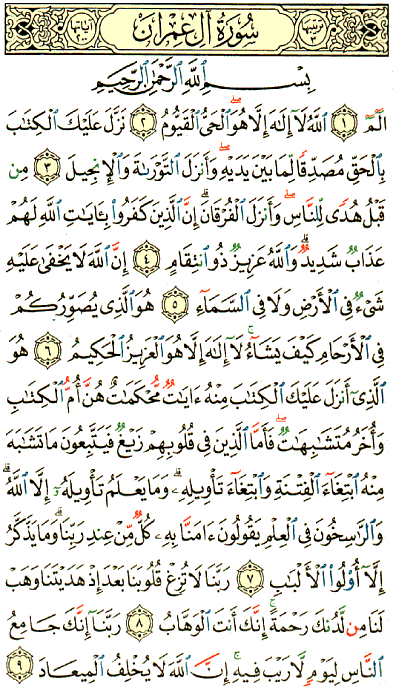 سُورَةُ آلِ عِمْرَان
بِسْمِ ٱللَّهِ ٱلرَّحْمَٰنِ ٱلرَّحِيمِ
الٓمٓ ١ ٱللَّهُ لَآ إِلَٰهَ إِلَّا هُوَ ٱلْحَىُّ ٱلْقَيُّومُ ٢ نَزَّلَ عَلَيْكَ ٱلْكِتَٰبَ
بِٱلْحَقِّ مُصَدِّقًا لِّمَا بَيْنَ يَدَيْهِ وَأَنزَلَ ٱلتَّوْرَىٰةَ وَٱلْإِنجِيلَ ٣ مِن
قَبْلُ هُدًى لِّلنَّاسِ وَأَنزَلَ ٱلْفُرْقَانَ إِنَّ ٱلَّذِينَ كَفَرُوا۟ بِـَٔايَٰتِ ٱللَّهِ لَهُمْ
عَذَابٌ شَدِيدٌ وَٱللَّهُ عَزِيزٌ ذُو ٱنتِقَامٍ ٤ إِنَّ ٱللَّهَ لَا يَخْفَىٰ عَلَيْهِ
شَىْءٌ فِى ٱلْأَرْضِ وَلَا فِى ٱلسَّمَآءِ ٥ هُوَ ٱلَّذِى يُصَوِّرُكُمْ
فِى ٱلْأَرْحَامِ كَيْفَ يَشَآءُ لَآ إِلَٰهَ إِلَّا هُوَ ٱلْعَزِيزُ ٱلْحَكِيمُ ٦ هُوَ
ٱلَّذِىٓ أَنزَلَ عَلَيْكَ ٱلْكِتَٰبَ مِنْهُ ءَايَٰتٌ مُّحْكَمَٰتٌ هُنَّ أُمُّ ٱلْكِتَٰبِ
وَأُخَرُ مُتَشَٰبِهَٰتٌ فَأَمَّا ٱلَّذِينَ فِى قُلُوبِهِمْ زَيْغٌ فَيَتَّبِعُونَ مَا تَشَٰبَهَ
مِنْهُ ٱبْتِغَآءَ ٱلْفِتْنَةِ وَٱبْتِغَآءَ تَأْوِيلِهِۦ وَمَا يَعْلَمُ تَأْوِيلَهُۥٓ إِلَّا ٱللَّهُ
وَٱلرَّٰسِخُونَ فِى ٱلْعِلْمِ يَقُولُونَ ءَامَنَّا بِهِۦ كُلٌّ مِّنْ عِندِ رَبِّنَا وَمَا يَذَّكَّرُ
إِلَّآ أُو۟لُوا۟ ٱلْأَلْبَٰبِ ٧ رَبَّنَا لَا تُزِغْ قُلُوبَنَا بَعْدَ إِذْ هَدَيْتَنَا وَهَبْ
لَنَا مِن لَّدُنكَ رَحْمَةً إِنَّكَ أَنتَ ٱلْوَهَّابُ ٨ رَبَّنَآ إِنَّكَ جَامِعُ
ٱلنَّاسِ لِيَوْمٍ لَّا رَيْبَ فِيهِ إِنَّ ٱللَّهَ لَا يُخْلِفُ ٱلْمِيعَادَ ٩